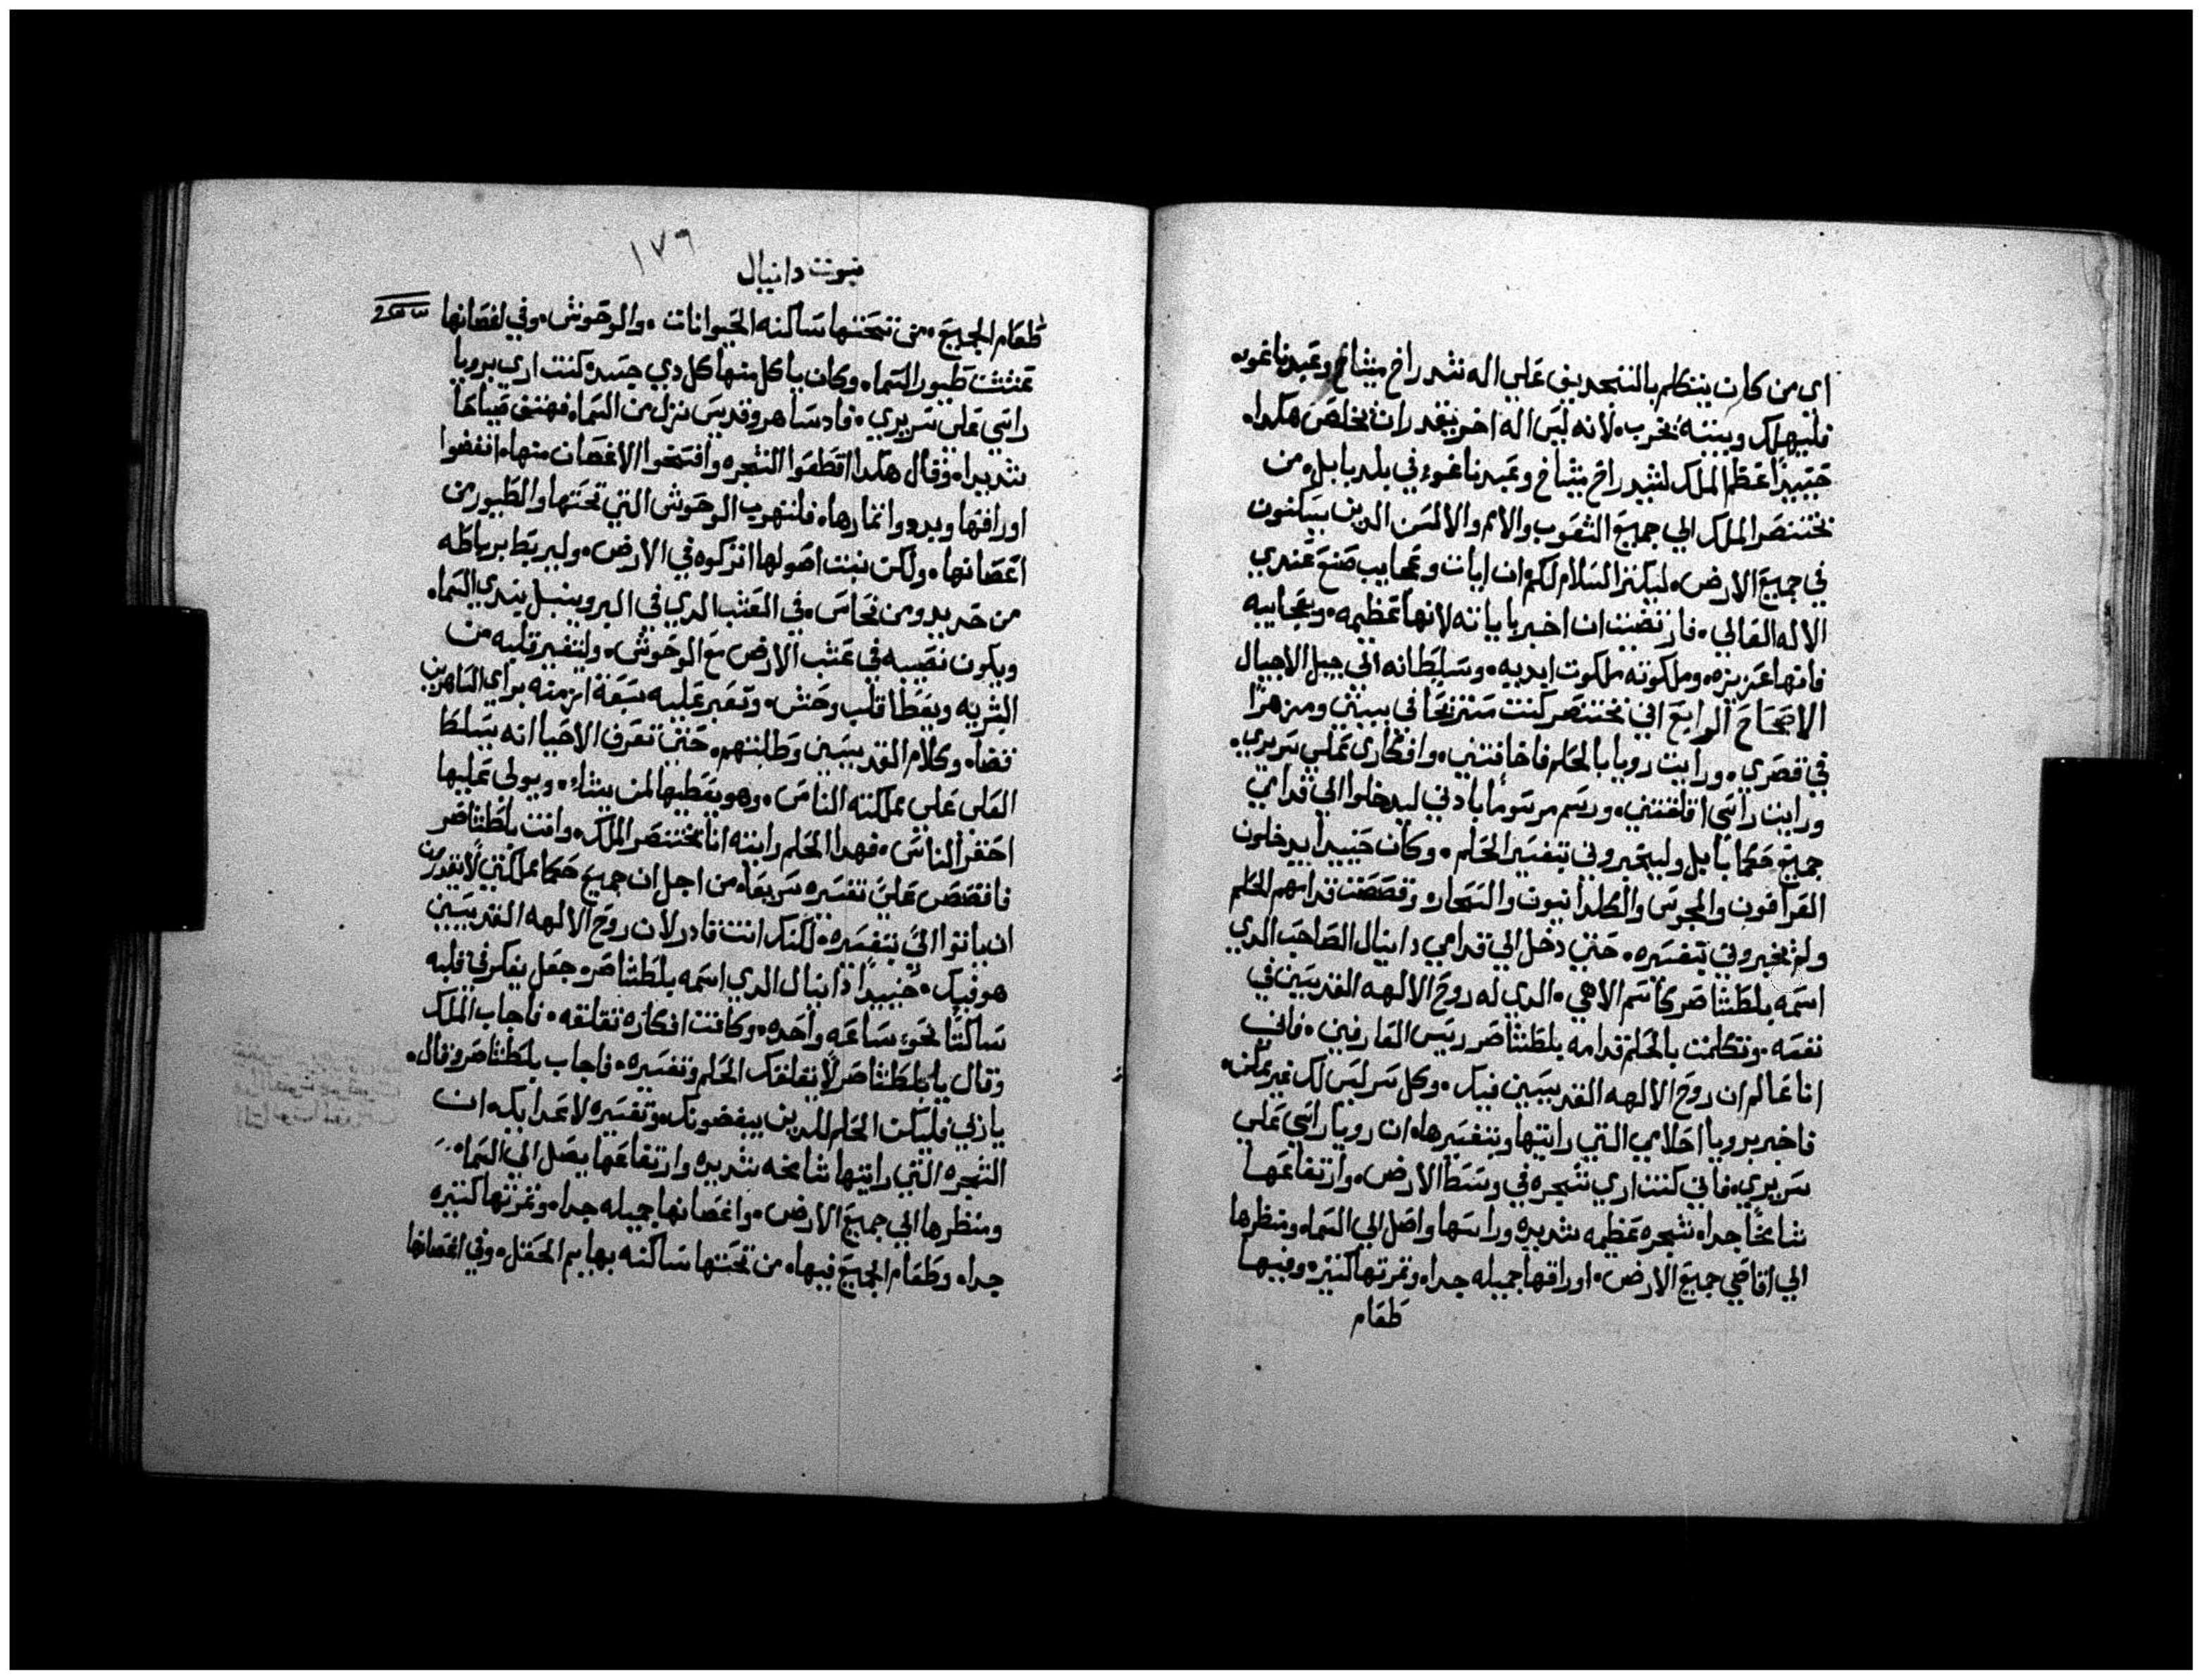 اى من كان يتكلم بالتجديف علي اله شدراخ ميشاخ وعبدناغوه
فليهلك وبيته يخرب، لانه ليس اله اخر يقدر ان يخلص هكدا،
حينيدًا عظم الملك لشدراخ ميشاخ وعبدناغوء في بلد بابل، من
بختنصر الملك الي جميع الشعوب والامم والالسن الدين يسكنون
في جميع الارض، ليكثر السلام لكم، ان ايات وعجايب صنع عندي
الاله العالي، فارتضيت ان اخبر باياته لانها عظيمه، وبعجايبه
فانها عزيزه، وملكوته ملكوت ابديه، وسلطانه الي جيل الاجيال
الاصحاح الرابع اني بختنصر كنت مستريحًا في بيتي ومزهرًا
في قصري، ورايت رويا بالحلم فاخافتني، وافكاري علي سريري،
ورايت راسي اقلقتني، ورسم مرسومًا بادني ليدخلوا الي قدامي
جميع حكما بابل وليخبروني بتفسير الحلم، وكان حينيدًا يدخلون
العرافون والمجوس والكلدانيون والسحاره وقصصت قدامهم الحلم
ولم يخبروني بتفسيره، حتي دخل الي قدامي دانيال الصاحب الدي
اسمه بلطشاصر كاسم الاهي، الدي له روح الالهه القديسين في
نفسه، وتكلمت بالحلم قدامه بلطشاصر رييس العارفين، فاني
انا عالم ان روح الالهه القديسين فيك، وكل سر ليس لك غير ممكن،
فاخبر برويا احلامي التي رايتها وبتفسيرها، ان رويا راسي علي
سريري، فاني كنت اري شجره في وسط الارض، وارتفاعها
شامخًا جدا، شجره عظيمه شديده وراسها واصل الي السماء ومنظرها
الي اقاصي جميع الارض، اوراقها جميله جدا، وثمرتها كثيره وفيها
طعام
١٧٦
نبوت دانيال
طعام الجميع، من تحتها ساكنه الحيوانات، والوحوش، وفي اغصانها
عششت طيور السماء، وكان ياكل منها كل دي جسد، كنت اري برويا
راسي علي سريري، فاد ساهر وقديس نزل من السماء فهتف صياحًا
شديدا، وقال هكدا اقطعوا الشجره وافتحوا الاغصان منها، انفضوا
اوراقها وبددوا اثمارها، فلتهرب الوحوش التي تحتها والطيور من
اغصانها، ولكن نبت اصولها اتركوه في الارض، وليربط برباط
من حديد ومن نحاس، في العشب الدي في البر ويتبل بندي السماء،
ويكون نصيبه في عشب الارض مع الوحوش، وليتغير قلبه من
البشريه ويعطا قلب وحش، وتعبر عليه سبعة ازمنه براي الساهرين
قضاء، وكلام القديسين وطلبتهم، حتي تعرف الاحيا انه يسلط
العلي علي مملكة الناس، وهو يعطيها لمن يشاء، ويولي عليها
احقر الناس، فهدا الحلم رايته انا بختنصر الملك، وانت بلطشاصر
فاقصص علي تفسيره سريعا، من اجل ان جميع حكما مملكتي لا يقدرون
ان ياتوا الي بتفسيره، لكنك انت قادر لان روح الالهه القديسين
هو فيك، حينيدًا دانيال الدي اسمه بلطشاصر، جعل يفكر في قلبه
ساكتًا نحو ساعه واحده، وكانت افكاره تقلقه، فاجاب الملك
وقال يا بلطشاصر لا يقلقك الحلم وتفسيره، فاجاب بلطشاصر وقال،
يا ربي فليكن الحلم للدين يبغضونك، وتفسيره لاعدايك، ان
الشجره التي رايتها شامخه شديده وارتفاعها يصل الي السماء،
ومنظرها الي جميع الارض، واغصانها جميله جدا، وثمرتها كثيره
جدا، وطعام الجميع فيها، من تحتها ساكنه بهايم الحقل، وفي اغصانها